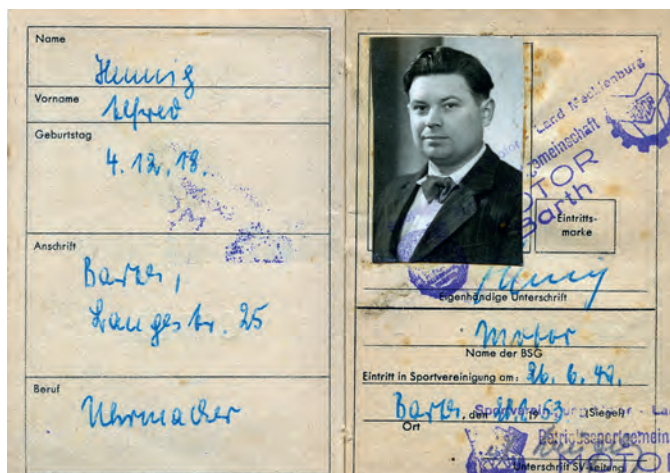 Name
Hennig
Vorname
Alfred
Geburtstag
4. 12. 18.
Anschrift
Barth,
Langestr. 25
Beruf
Uhrmacher
Land Mecklenburg
gemeinschaft
MOTOR
Barth
Eintritts-
marke
Hennig
Eigenhändige Unterschrift
Motor
Name der BSG
Eintritt in Sportvereinigung am: 26. 6. 49.
Barth, den 1953 (Siegel)
Ort
Betriebssportgemein
MOTO
Unterschrift SV-Leitung